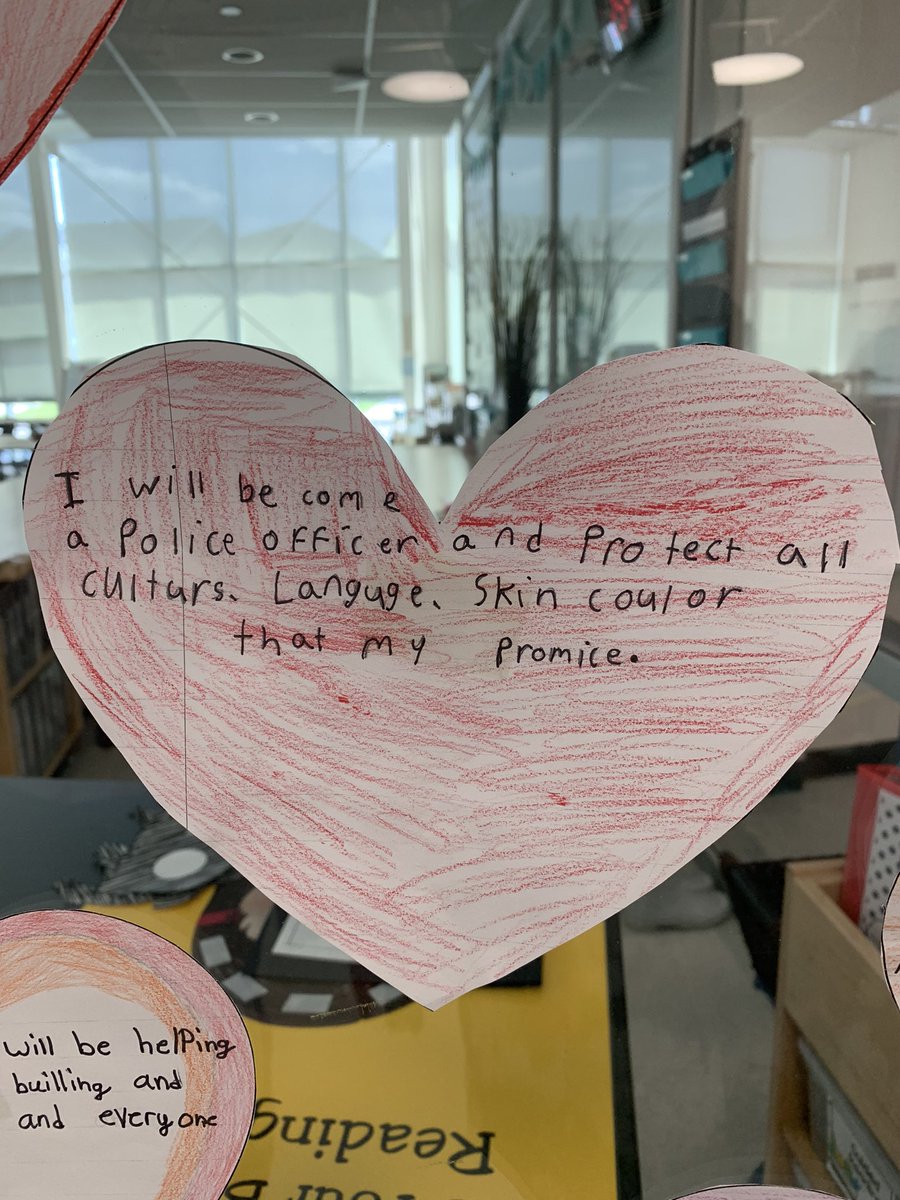 I will be come
a Police officer and Protect all
culturs. Languge. Skin coulor
that my promice.
will be helping
builling and
and everyone
Reading